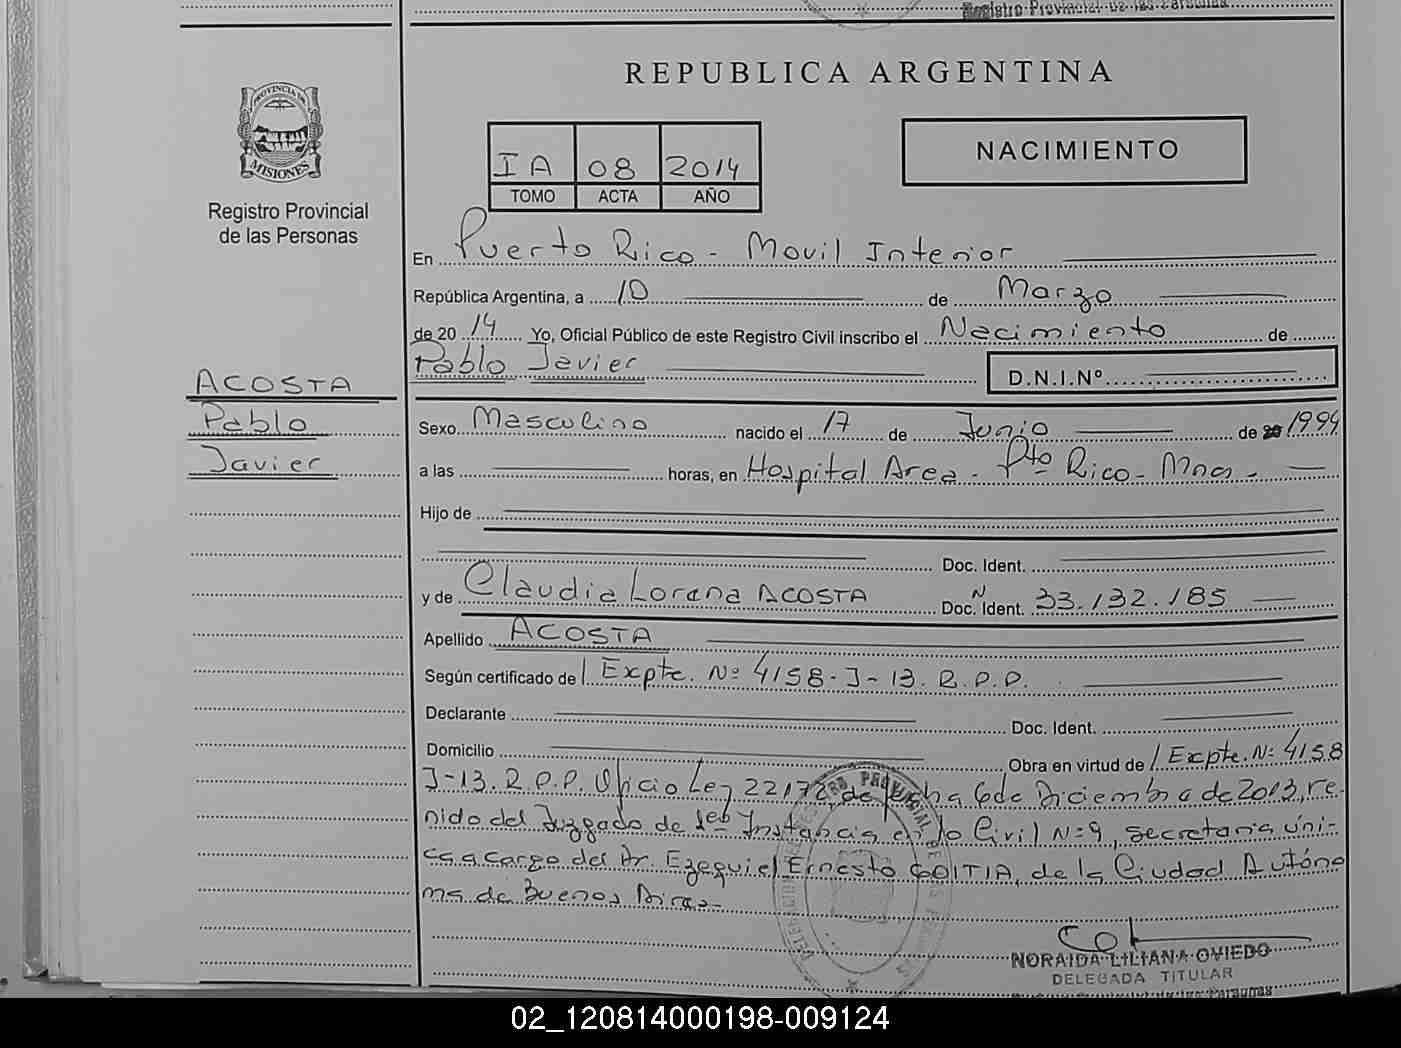 Registro Provincial de las Personas
REPUBLICA ARGENTINA
PROVINCIA DE
MISIONES
Registro Provincial
de las Personas
IA 08 2014
TOMO ACTA AÑO
NACIMIENTO
En Puerto Rico - Movil Interior
República Argentina, a 10 de Marzo
de 20 14 Yo, Oficial Público de este Registro Civil inscribo el Nacimiento de
Pablo Javier D.N.I.Nº
ACOSTA
Pablo
Javier
Sexo Masculino nacido el 17 de Junio de 20 1994
a las horas, en Hospital Area - Pto Rico - Mnes -
Hijo de
Doc. Ident.
y de Claudia Lorena ACOSTA Doc. Ident. N 33.132.185
Apellido ACOSTA
Según certificado de / Expte. Nº 4158-J-13. R.P.P.
Declarante Doc. Ident.
Domicilio Obra en virtud de / Expte. Nº 4158
J-13. R.P.P. Oficio Ley 22172, de fecha 6 de Diciembre de 2013, re-
nido del Juzgado de 1era Instancia en lo Civil Nº 9, secretaria úni-
ca a cargo del Dr. Ezequiel Ernesto GOITIA, de la Ciudad Autóno
ma de Buenos Aires-
NORAIDA LILIANA OVIEDO
DELEGADA TITULAR
Registro Provincial de las Personas
02_120814000198-009124